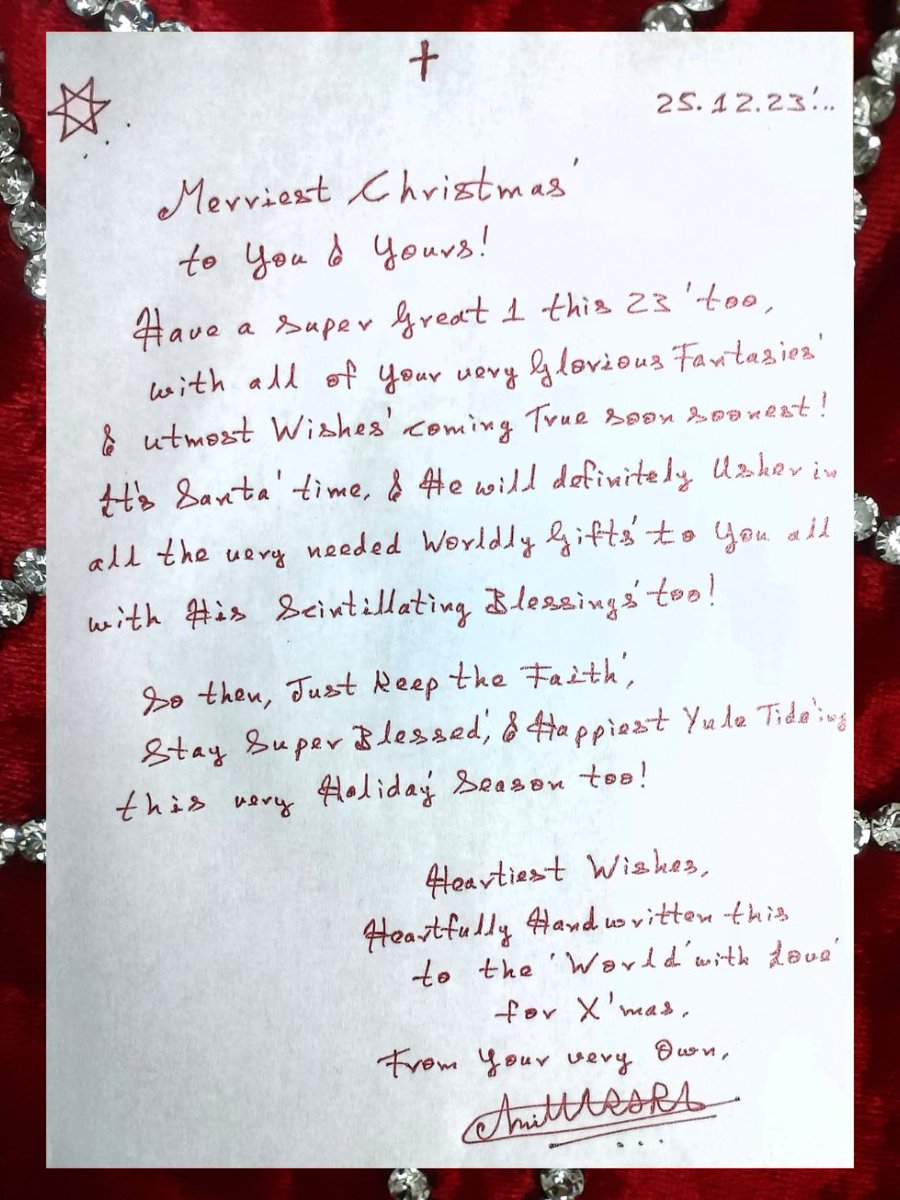 25.12.23'...
Merriest Christmas'
to You & Yours!
Have a super Great 1 this 23 'too,
with all of Your very Glorious Fantasies'
& utmost Wishes' coming True soon soonest!
It's Santa' time, & He will definitely Usher in
all the very needed Worldly Gifts' to You all
with His Scintillating Blessings' too!
So then, Just Keep the Faith',
Stay Super Blessed', & Happiest Yule Tide'ing
this very Holiday' Season too!
Heartiest Wishes,
Heartfully Handwritten this
to the 'World' with Love'
for X'mas,
From Your very Own,